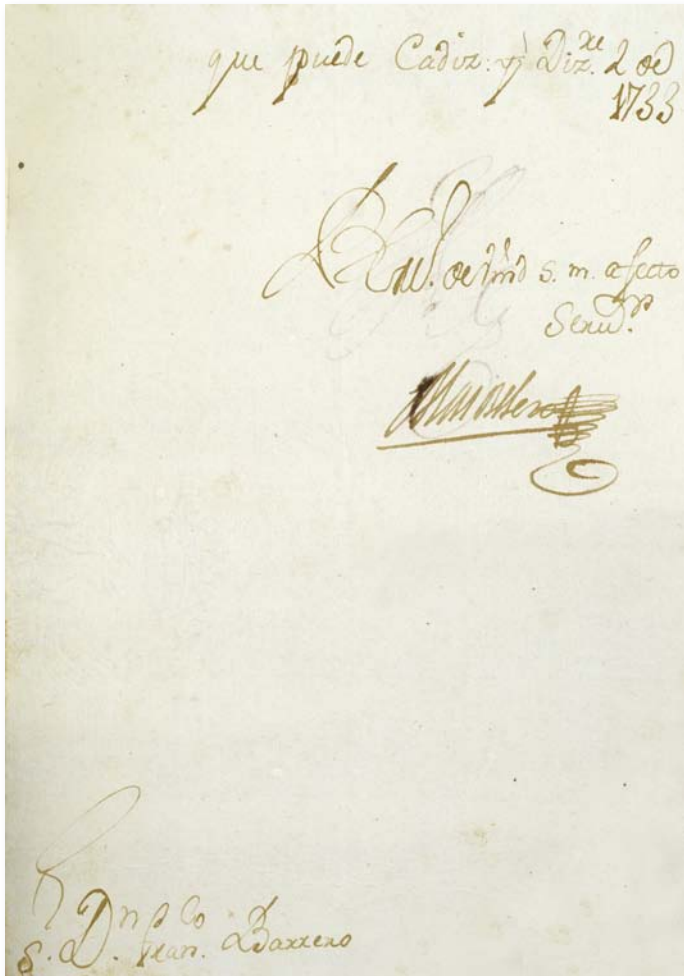 que puede Cadiz: y Diz.re 2 de
1733
BLM. de Vmd s. m. afecto
Servd.r
S. D.n Fran.co Barrero